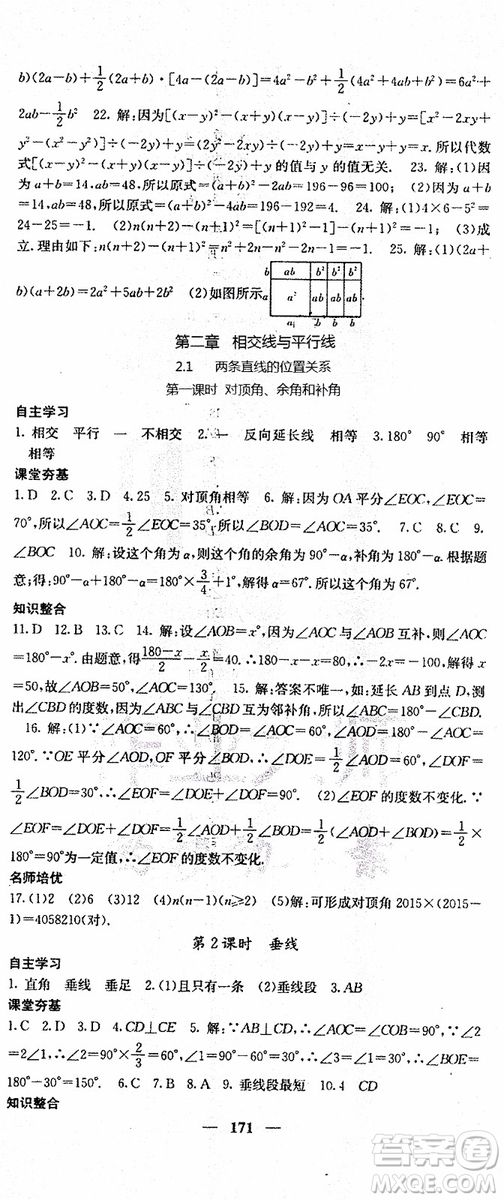 b)(2a-b)+1/2(2a+b)·[4a-(2a-b)]=4a²-b²+1/2(4a²+4ab+b²)=6a²+
2ab-1/2b² 22. 解:因为[(x-y)²-(x+y)(x-y)]÷(-2y)+y=[x²-2xy+
y²-(x²-y²)]÷(-2y)+y=(2y²-2xy)÷(-2y)+y=-y+x+y=x.所以代数
式[(x-y)²-(x+y)(x-y)]÷(-2y)+y的值与y的值无关. 23. 解:(1)因
为a+b=14,ab=48,所以原式=(a+b)²-2ab=196-96=100; (2)因为a+b
=14,ab=48,所以原式=(a+b)²-4ab=196-192=4. 24. 解:(1)4×6-5²=
24-25=-1. (2)n(n+2)-(n+1)²=-1. (3)成
立.理由如下:n(n+2)-(n+1)²=n²+2n-n²-2n-1=-1. 25. 解:(1)(2a+
b)(a+2b)=2a²+5ab+2b² (2)如图所示
b ab b² b²
a a² ab ab
a b b
第二章 相交线与平行线
2.1 两条直线的位置关系
第一课时 对顶角、余角和补角
自主学习
1. 相交 平行 一 不相交 2. 一 反向延长线 相等 3. 180° 90° 相等
相等
课堂夯基
1. D 2. C 3. D 4. 25 5. 对顶角相等 6. 解:因为OA平分∠EOC,∠EOC=
70°,所以∠AOC=1/2∠EOC=35°,所以∠BOD=∠AOC=35° 7. C 8. C 9.
∠BOC 10. 解:设这个角为α,则这个角的余角90°-α,补角为180°-α.根据题
意;得:90°-α+180°-α=180°×3/4+1°,解得:α=67°.所以这个角为67°.
知识整合
11. D 12. B 13. C 14. 解:设∠AOB=x°,因为∠AOC与∠AOB互补,则∠AOC
=180°-x°.由题意,得(180-x)/2-x/2=40.所以180-x-x=80,所以-2x=-100,解得x
=50,故∠AOB=50°,∠AOC=130° 15. 解:答案不唯一,如:延长AB到点D,测
出∠CBD的度数,因为∠ABC与∠CBD互为邻补角,所以∠ABC=180°-∠CBD.
16. 解:(1)∵∠AOC=60°,∴∠BOD=∠AOC=60°,∠AOD=180°-60°=
120°.∵OE平分∠AOD,OF平分∠BOD,∴∠DOE=1/2∠AOD=60°,∠DOF=
1/2∠BOD=30°,∴∠EOF=∠DOE+∠DOF=90°; (2)∠EOF的度数不变化.
∵∠EOF=∠DOE+∠DOF=1/2∠AOD+1/2∠BOD=1/2(∠AOD+∠BOD)=1/2×
180°=90°为一定值,∴∠EOF的度数不变化.
名师培优
17. (1)2 (2)6 (3)12 (4)n(n-1)(n≥2) (5)解:可形成对顶角2015×(2015-
1)=4058210(对).
第2课时 垂线
自主学习
1. 直角 垂线 垂足 2. (1)且只有一条 (2)垂线段 3. AB
课堂夯基
1. C 2. D 3. D 4. CD⊥CE 5. 解:∵AB⊥CD,∴∠AOC=∠COB=90°,∵∠2
=2∠1,∴∠2=90°×2/3=60°,∴∠1=90°-60°=30°,∵∠1=∠AOE,∴∠BOE=
180°-30°=150°. 6. C 7. B 8. A 9. 垂线段最短 10. 4 CD
知识整合
171